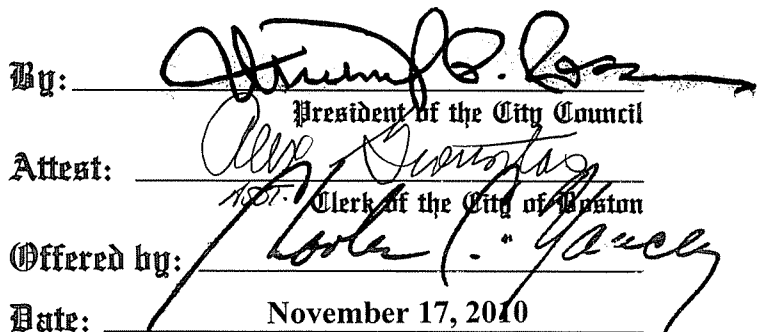 By:
President of the City Council
Attest:
Asst. Clerk of the City of Boston
Offered by: Charles C. Yancey
Date: November 17, 2010